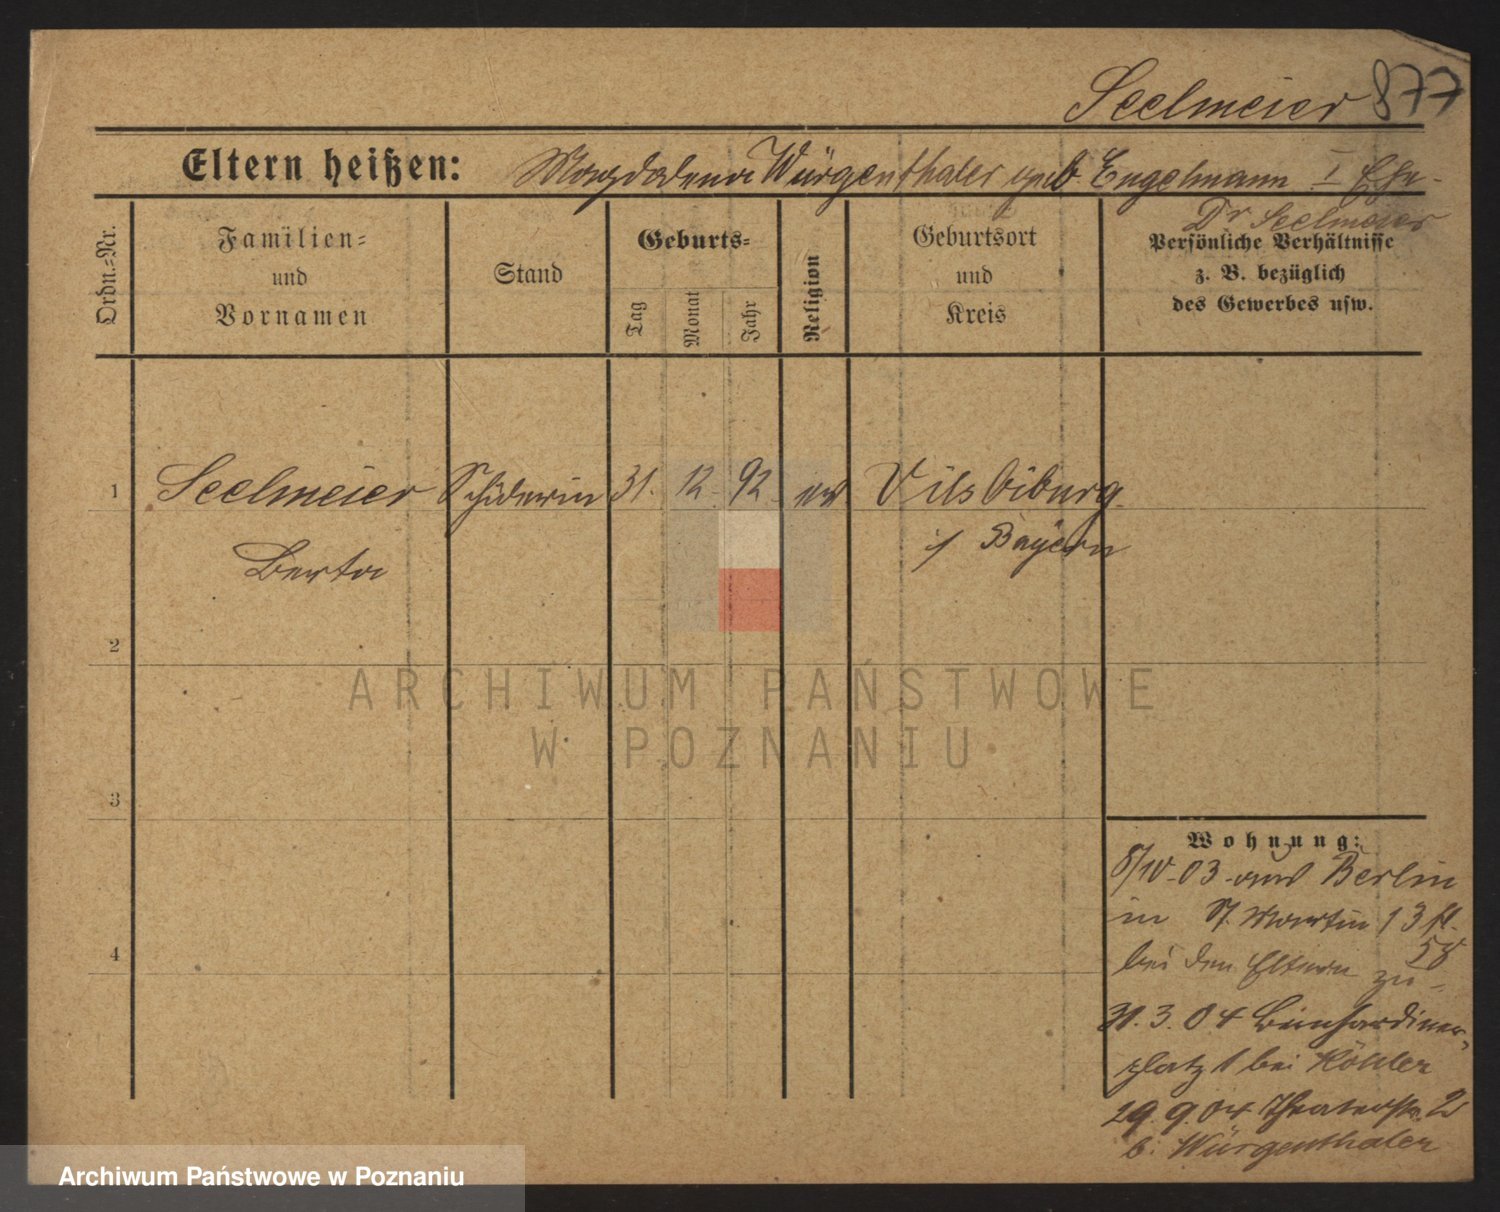 Seelmeier 877
Eltern heißen: Magdalena Würgenthaler geb. Engelmann I Ehe
Dr Seelmeier
Ordn.=Nr.
Familien=
und
Vornamen
Stand
Geburts=
Tag
Monat
Jahr
Religion
Geburtsort
und
Kreis
Persönliche Verhältnisse
z. B. bezüglich
des Gewerbes usw.
1 Seelmeier Schülerin 31. 12. 92. ev Vilsbiburg
Berta
i/ Bayern
2
3
4
Wohnung:
8/IV. 03 aus Berlin
in St. Martin 13
58
bei den Eltern zu
31. 3. 04 Bernhardiner-
platz 1 bei Köhler
29. 9. 04 Theaterstr. 2
b. Würgenthaler
ARCHIWUM PAŃSTWOWE
W POZNANIU
Archiwum Państwowe w Poznaniu